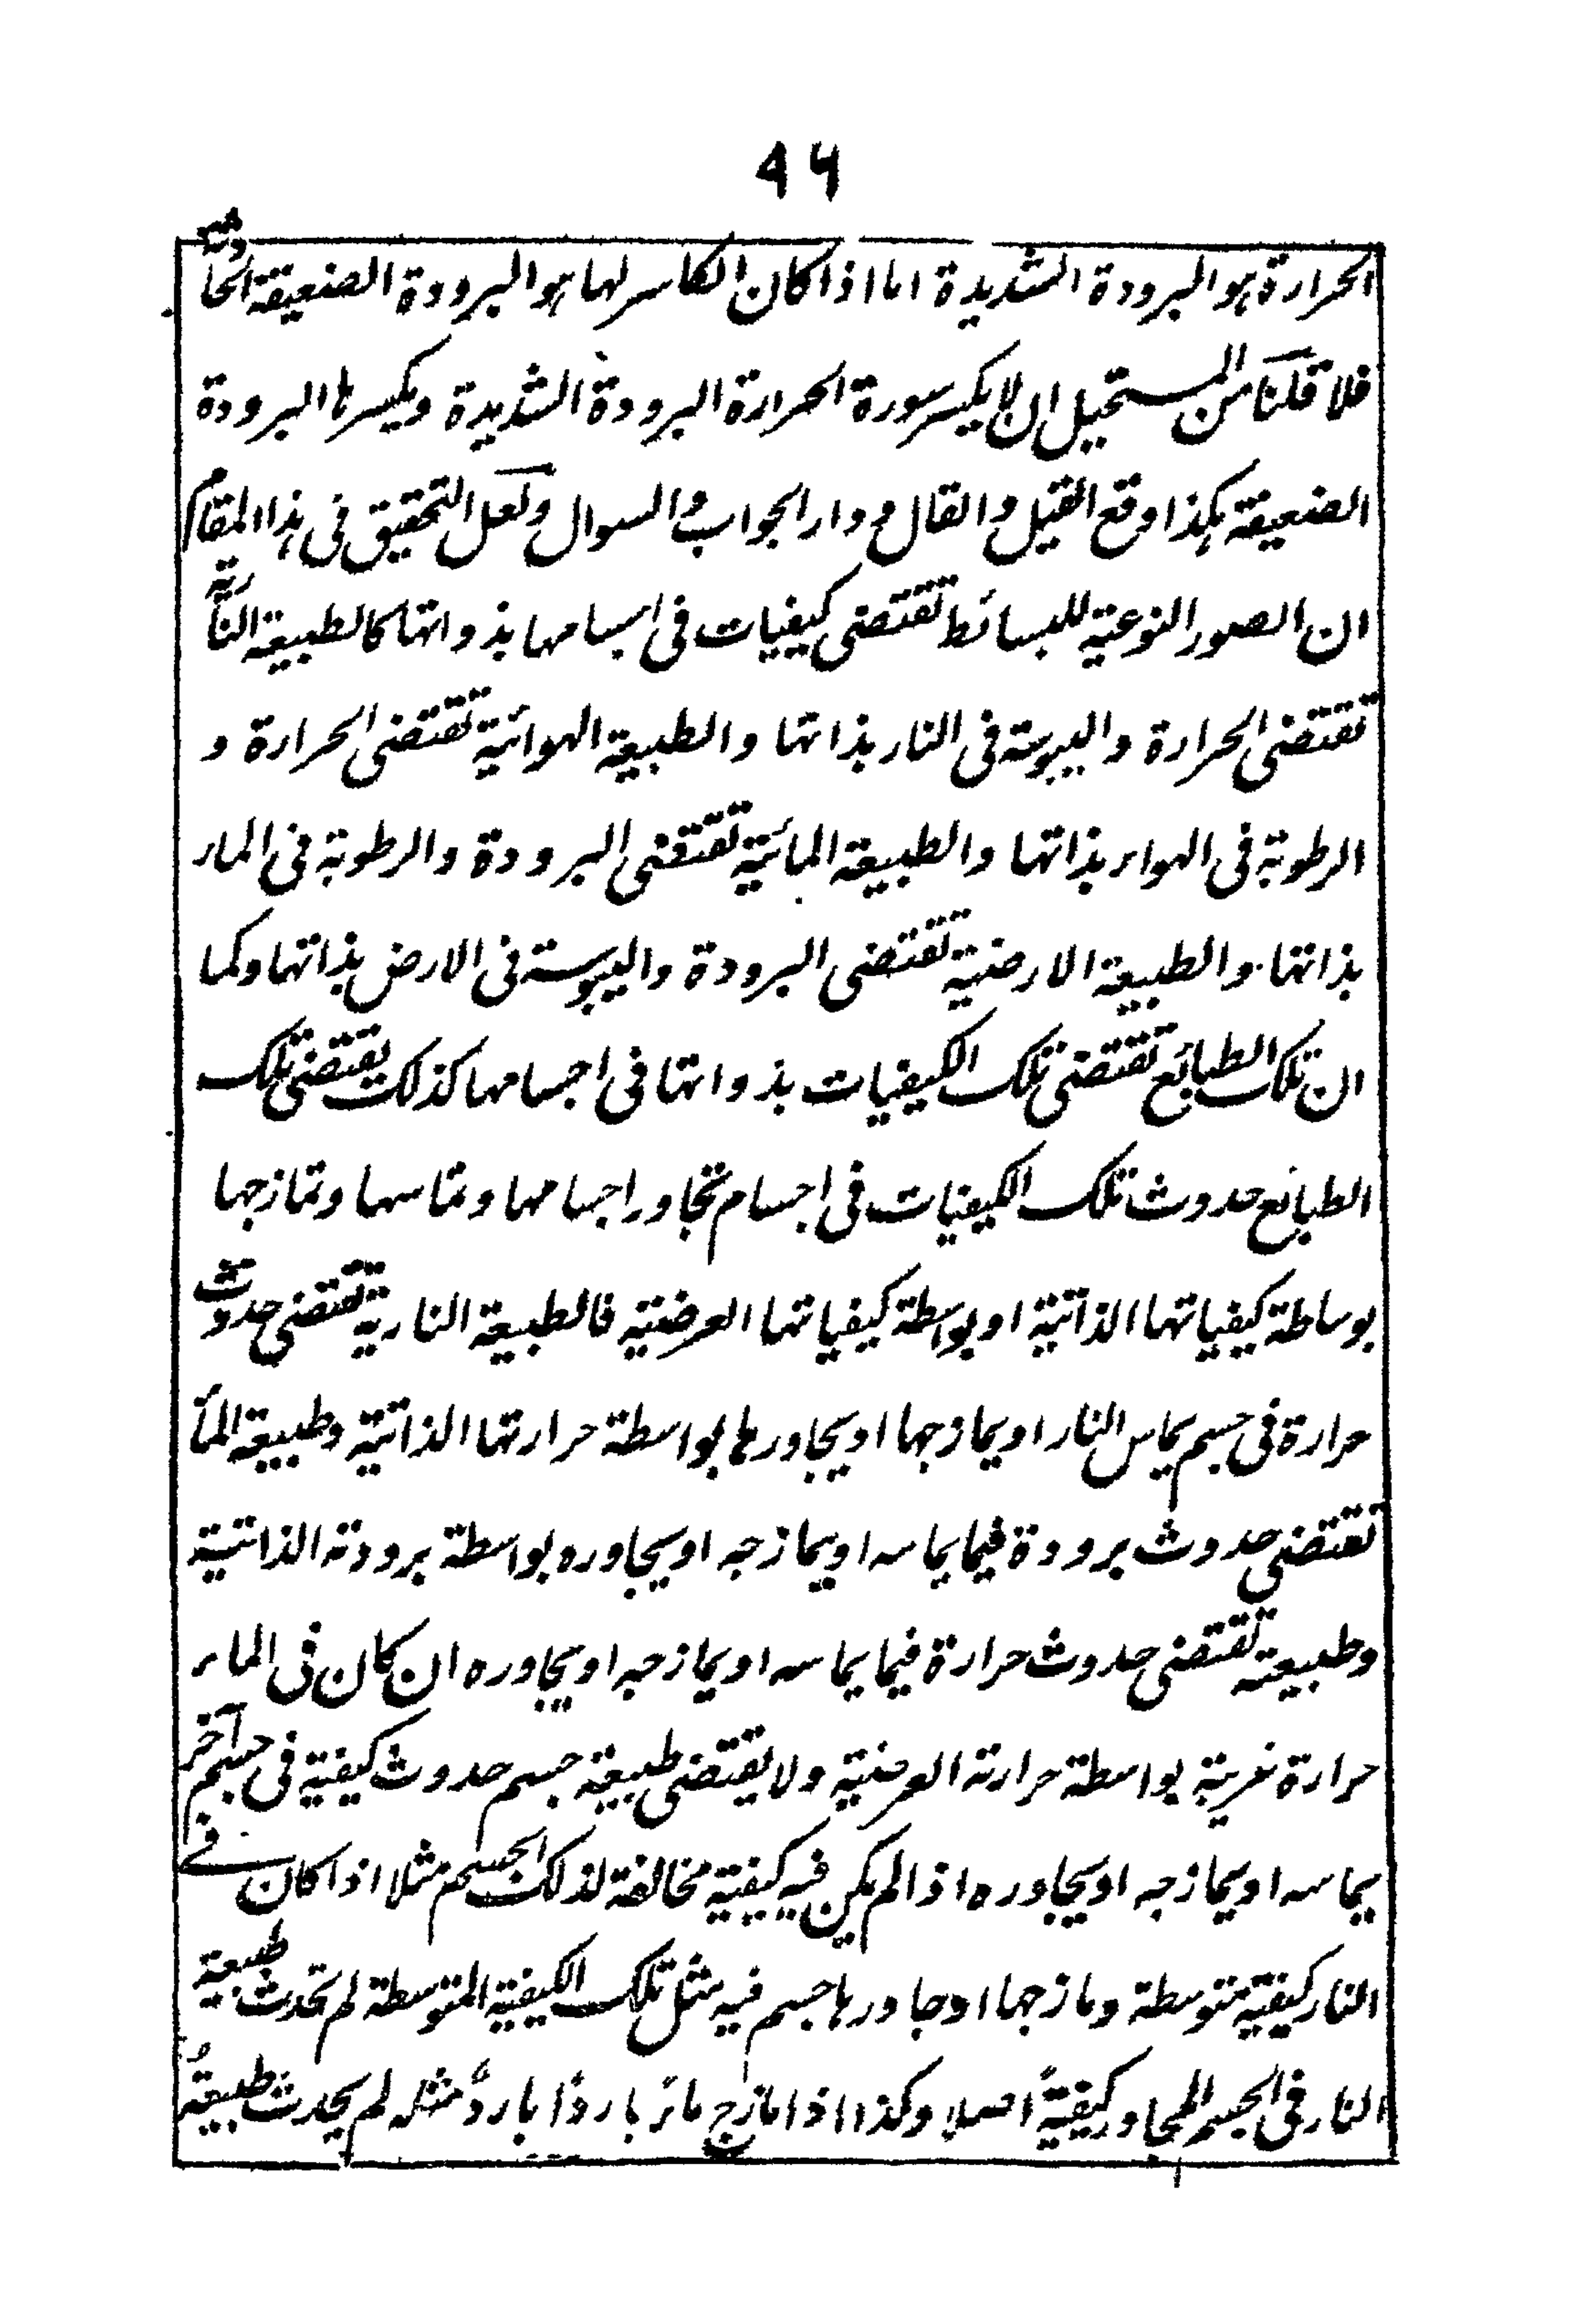 ٩٦
الحرارة هو البرودة الشديدة اما اذا كان الكاسر لها هو البرودة الضعيفة الحادثة
فلا قلنا من المستحيل ان لا يكسر سورة الحرارة البرودة الشديدة ويكسرها البرودة
الضعيفة هكذا وقع القيل والقال و دار الجواب والسوال ولعل التحقيق فى هذا المقام
ان الصور النوعية للبسائط تقتضى كيفيات فى اجسامها بذواتها كالطبيعة النارية
تقتضى الحرارة واليبوسة فى النار بذاتها والطبيعة الهوائية تقتضى الحرارة و
الرطوبة فى الهواء بذاتها والطبيعة المائية تقتضى البرودة والرطوبة فى الماء
بذاتها والطبيعة الارضية تقتضى البرودة واليبوسة فى الارض بذاتها وكما
ان تلك الطبائع تقتضى تلك الكيفيات بذواتها فى اجسامها كذلك يقتضى تلك
الطبائع حدوث تلك الكيفيات فى اجسام تجاور اجسامها وتماسها وتمازجها
بوساطة كيفياتها الذاتية او بواسطة كيفياتها العرضية فالطبيعة النارية تقتضى حدوث
حرارة فى جسم يماس النار او يمازجها او يجاورها بواسطة حرارتها الذاتية وطبيعة الماء
تقتضى حدوث برودة فيما يماسه او يمازجه او يجاوره بواسطة برودته الذاتية
وطبيعته تقتضى حدوث حرارة فيما يماسه او يمازجه او يجاوره ان كان فى الماء
حرارة غريبة بواسطة حرارته العرضية ولا يقتضى طبيعة جسم حدوث كيفية فى جسم آخر
يماسه او يمازجه او يجاوره اذا لم يكن فيه كيفية مخالفة لذلك الجسم مثلا اذا كان فى
النار كيفية متوسطة ومازجها او جاورها جسم فيه مثل تلك الكيفية المتوسطة لم تحدث طبيعة
النار فى الجسم المجاور كيفيةً اصلا وكذا اذا مازج ماءً باردًا باردٌ مثله لم يحدث طبيعةُ